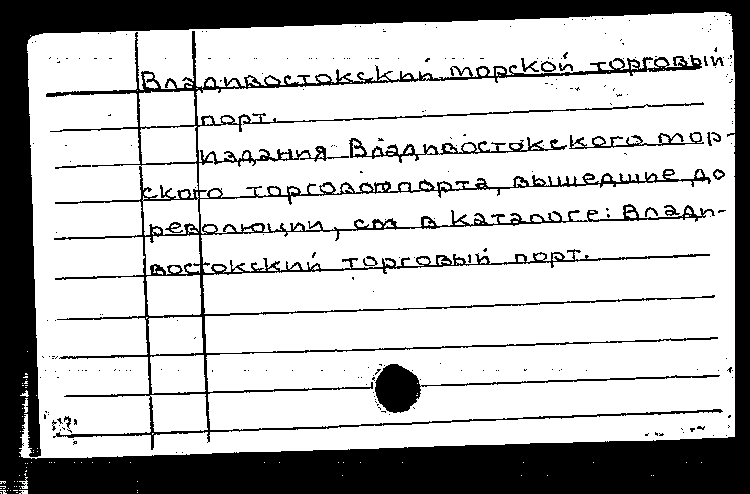 Владивостокский морской торговый
порт.
Издания Владивостокского мор-
ского торгового порта, вышедшие до
революции, см в каталоге: Влади-
востокский торговый порт.